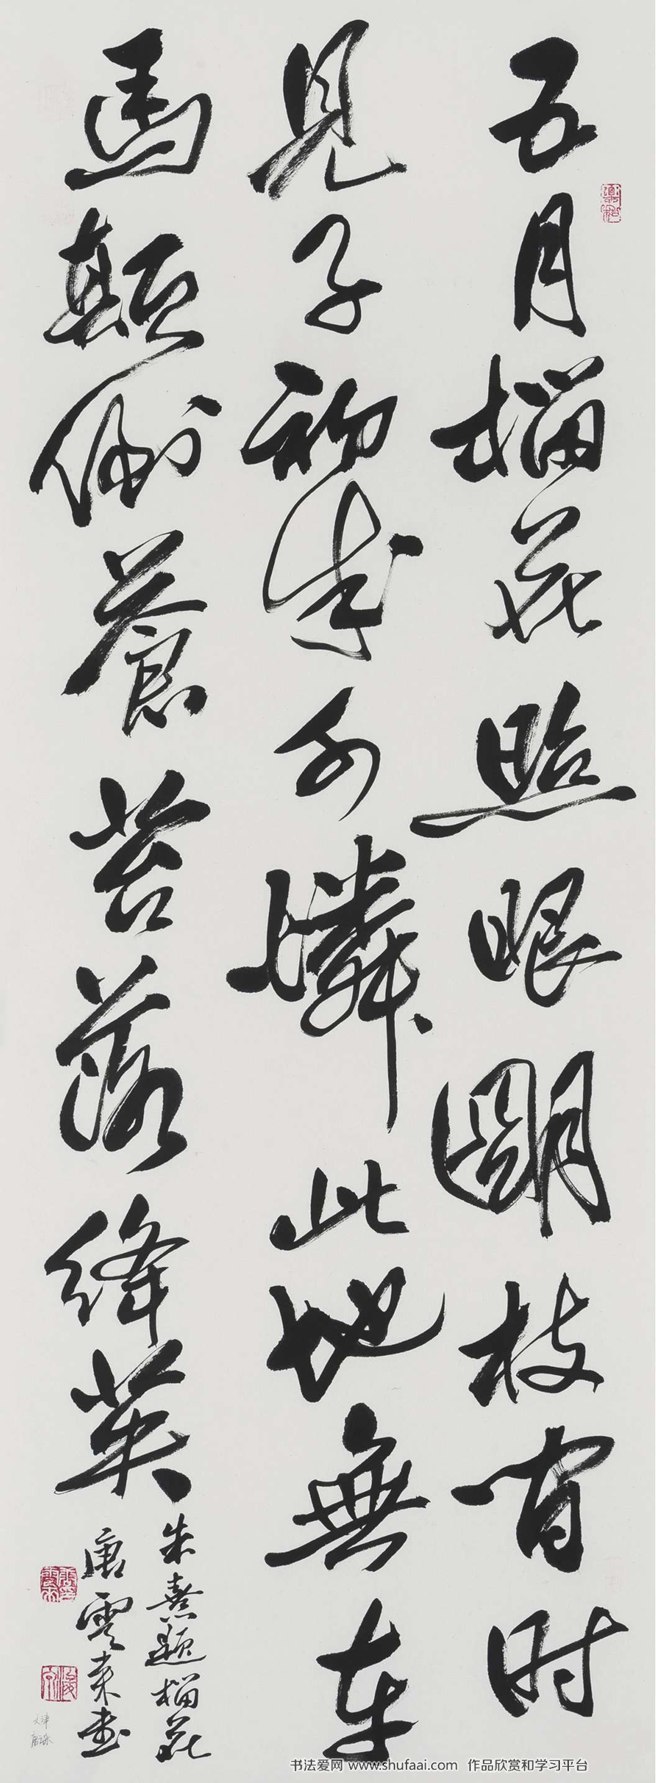 五月榴花照眼明枝間时
見子初成可憐此地無車
馬顛倒蒼苔落絳英
朱熹題榴花
唐雲来書
书法爱网 www.shufaai.com 作品欣赏和学习平台